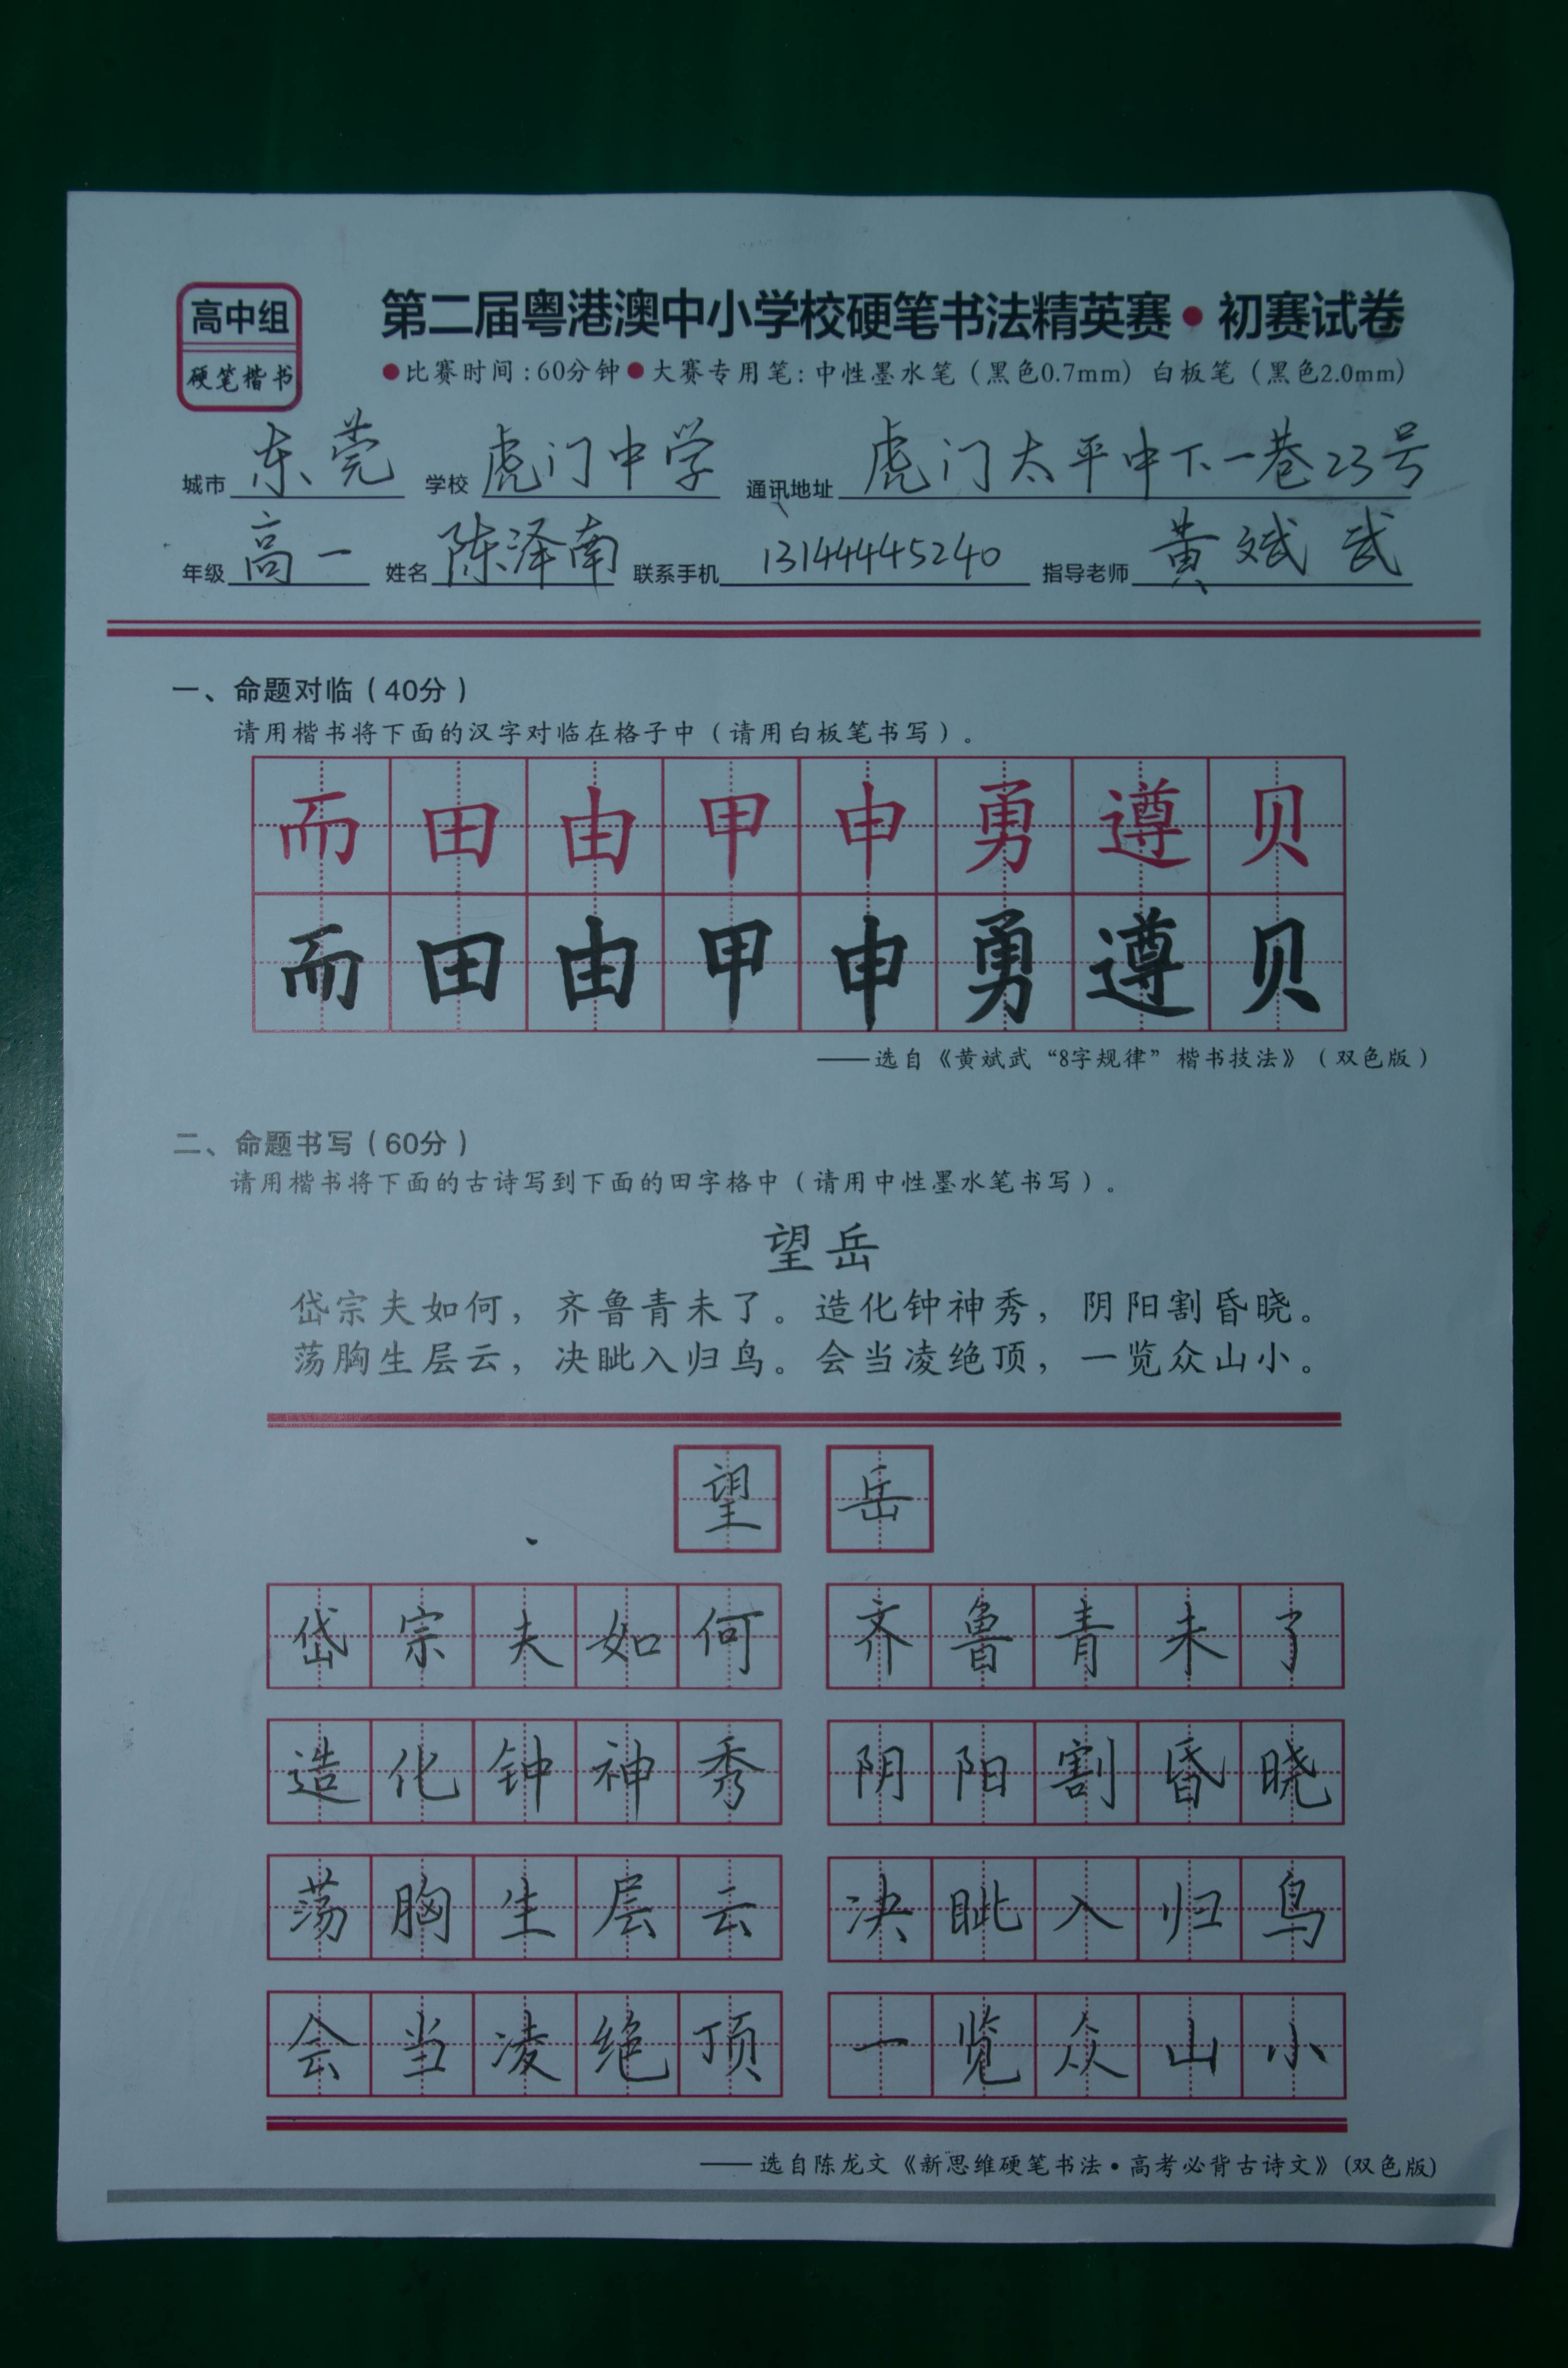 高中组
硬笔楷书
第二届粤港澳中小学校硬笔书法精英赛•初赛试卷
●比赛时间:60分钟●大赛专用笔:中性墨水笔(黑色0.7mm) 白板笔(黑色2.0mm)
城市 东莞 学校 虎门中学 通讯地址 虎门太平中下一巷23号
年级 高一 姓名 陈泽南 联系手机 13144445240 指导老师 黄斌武
一、命题对临(40分)
请用楷书将下面的汉字对临在格子中(请用白板笔书写)。
而田由甲申勇遵贝
而田由甲申勇遵贝
——选自《黄斌武“8字规律”楷书技法》(双色版)
二、命题书写(60分)
请用楷书将下面的古诗写到下面的田字格中(请用中性墨水笔书写)。
望岳
岱宗夫如何,齐鲁青未了。造化钟神秀,阴阳割昏晓。
荡胸生层云,决眦入归鸟。会当凌绝顶,一览众山小。
望岳
岱宗夫如何 齐鲁青未了
造化钟神秀 阴阳割昏晓
荡胸生层云 决眦入归鸟
会当凌绝顶 一览众山小
——选自陈龙文《新思维硬笔书法•高考必背古诗文》(双色版)